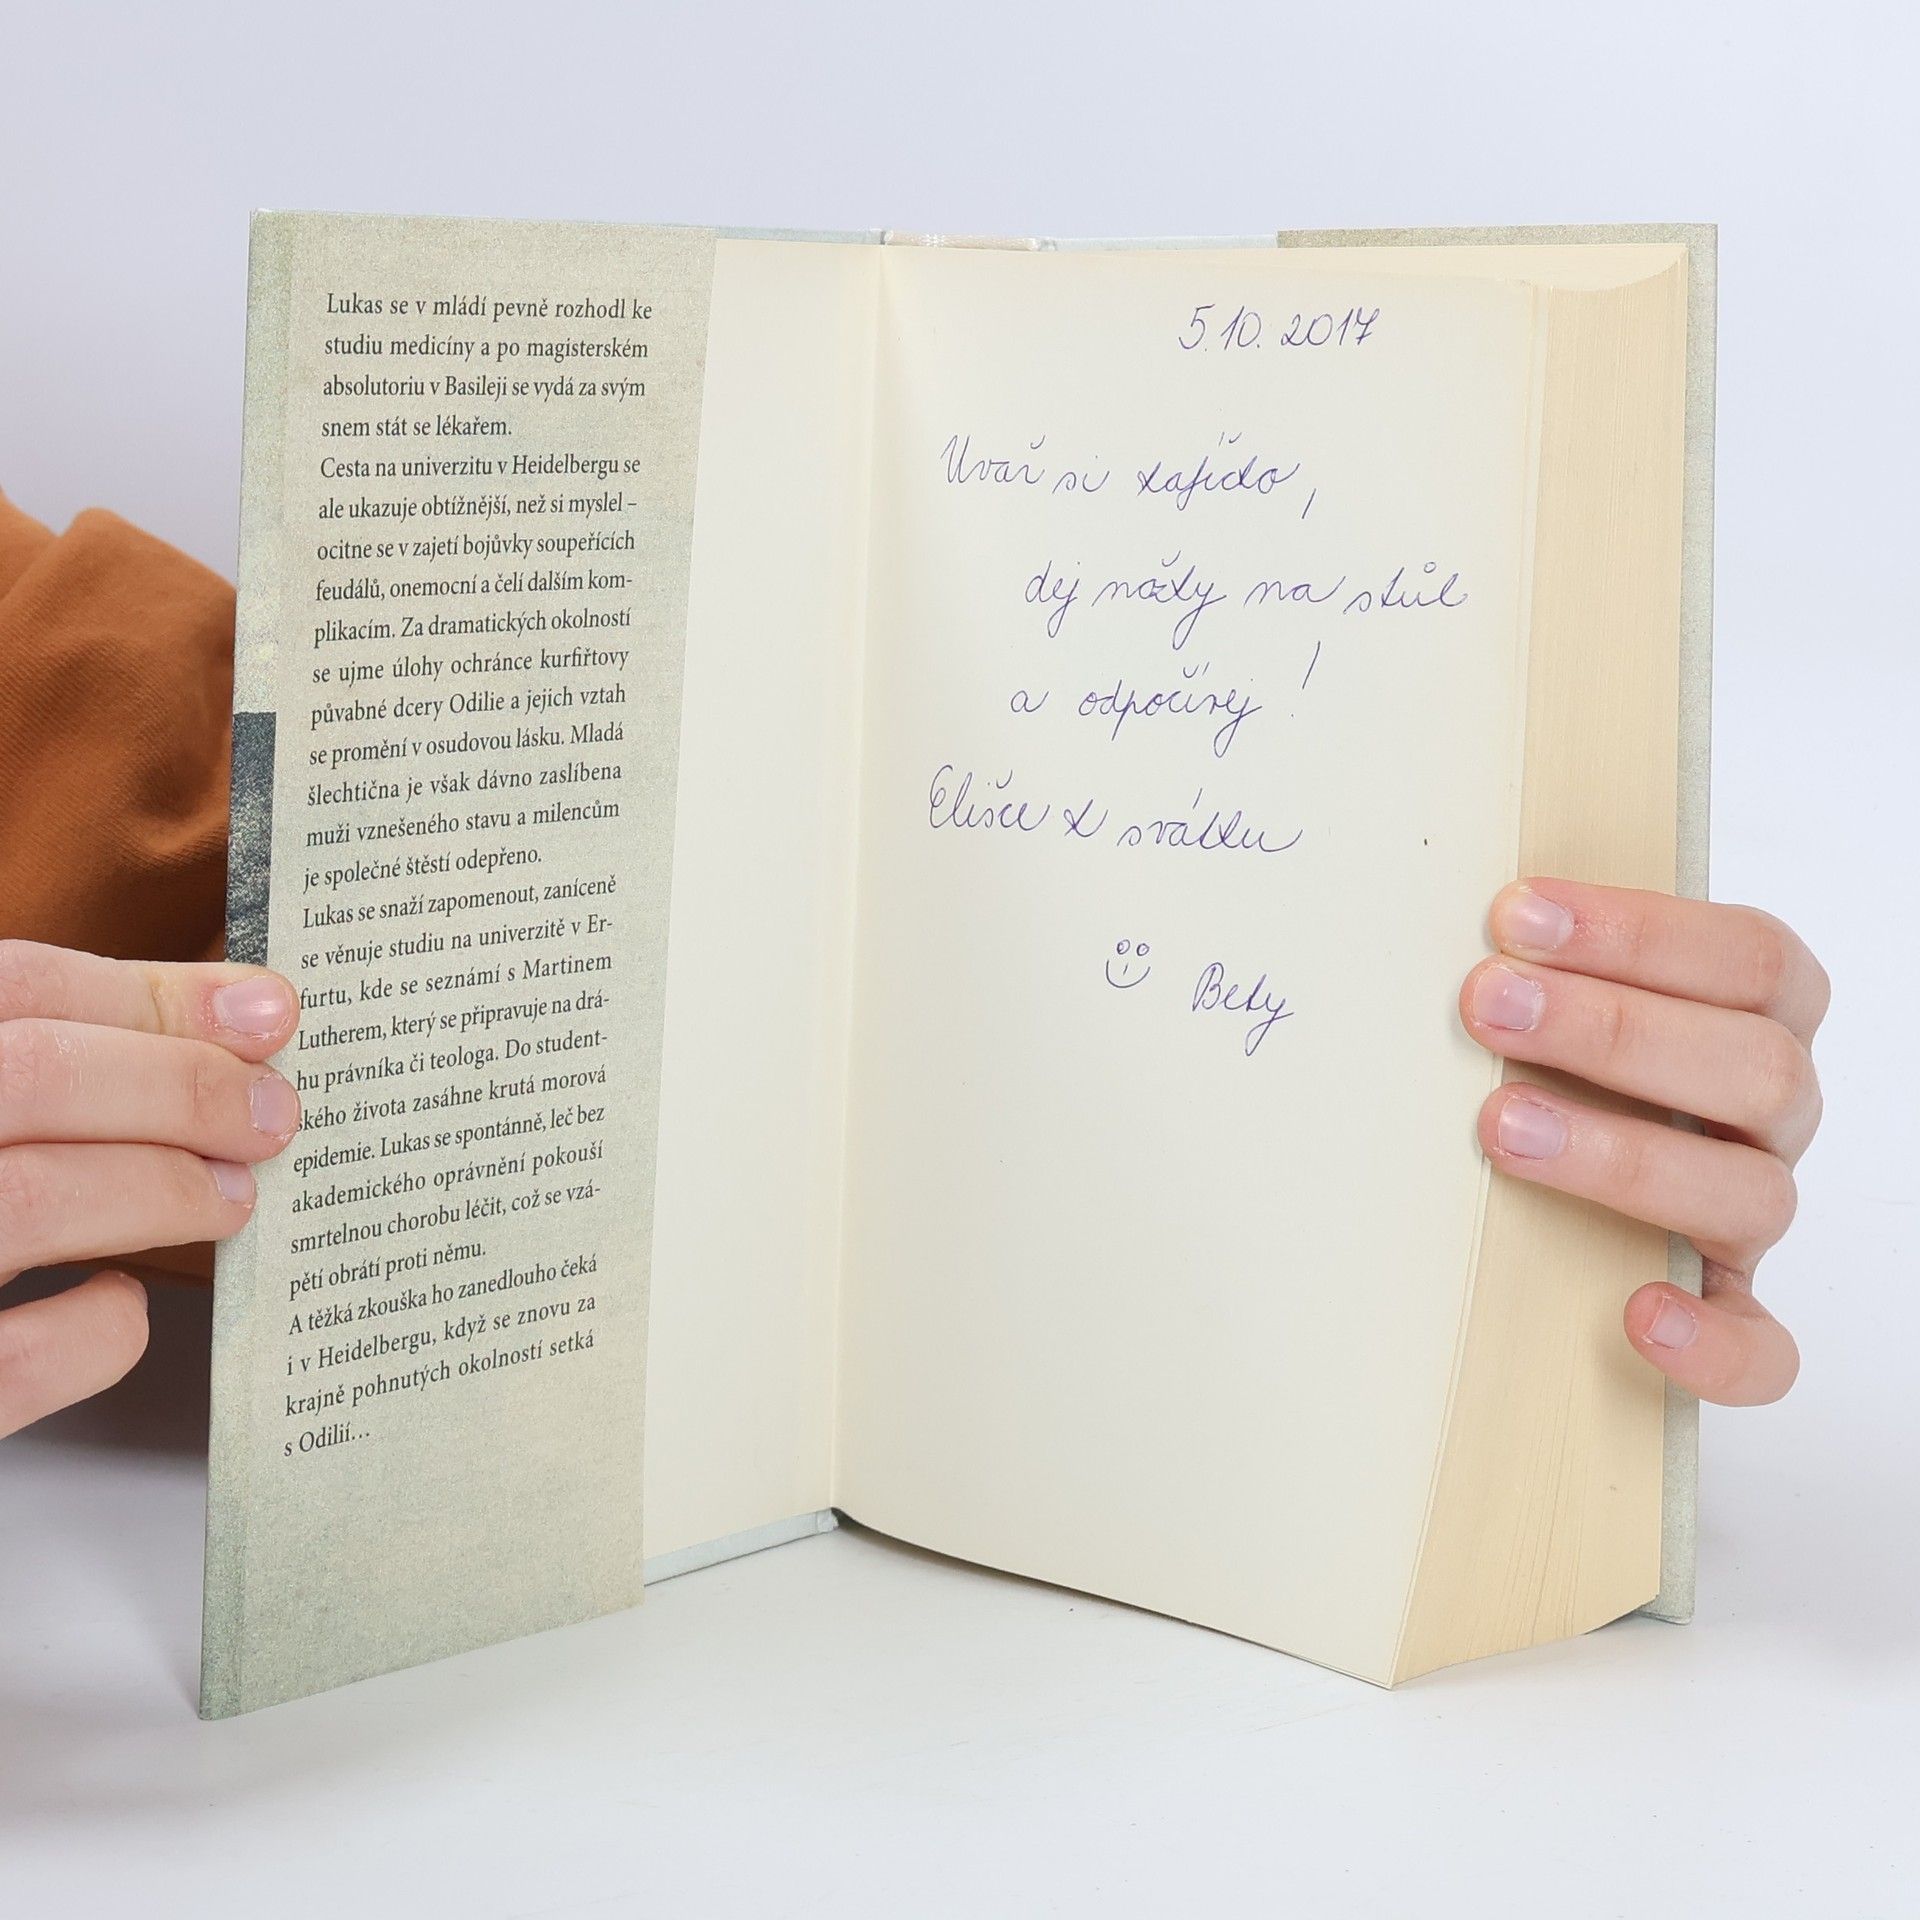 Lukas se v mládí pevně rozhodl ke
studiu medicíny a po magisterském
absolutoriu v Basileji se vydá za svým
snem stát se lékařem.
Cesta na univerzitu v Heidelbergu se
ale ukazuje obtížnější, než si myslel –
ocitne se v zajetí bojůvky soupeřících
feudálů, onemocní a čelí dalším kom-
plikacím. Za dramatických okolností
se ujme úlohy ochránce kurfiřtovy
půvabné dcery Odilie a jejich vztah
se promění v osudovou lásku. Mladá
šlechtična je však dávno zaslíbena
muži vznešeného stavu a milencům
je společné štěstí odepřeno.
Lukas se snaží zapomenout, zaníceně
se věnuje studiu na univerzitě v Er-
furtu, kde se seznámí s Martinem
Lutherem, který se připravuje na drá-
hu právníka či teologa. Do student-
ského života zasáhne krutá morová
epidemie. Lukas se spontánně, leč bez
akademického oprávnění pokouší
smrtelnou chorobu léčit, což se vzá-
pětí obrátí proti němu.
A těžká zkouška ho zanedlouho čeká
i v Heidelbergu, když se znovu za
krajně pohnutých okolností setká
s Odilií…
5.10. 2017
Uvař si kafíčko,
dej nožky na stůl
a odpočívej!
Elišce k svátku
Bety